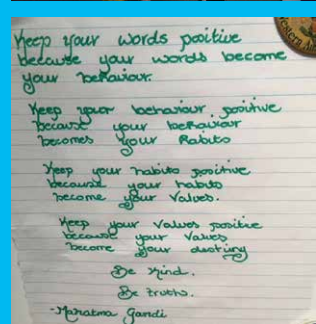 Keep your words positive
because your words become
your behaviour.
Keep your behaviour positive
because your behaviour
becomes your habits
Keep your habits positive
because your habits
become your values.
Keep your values positive
because your values
become your destiny
Be kind.
Be truths.
-Mahatma Gandi